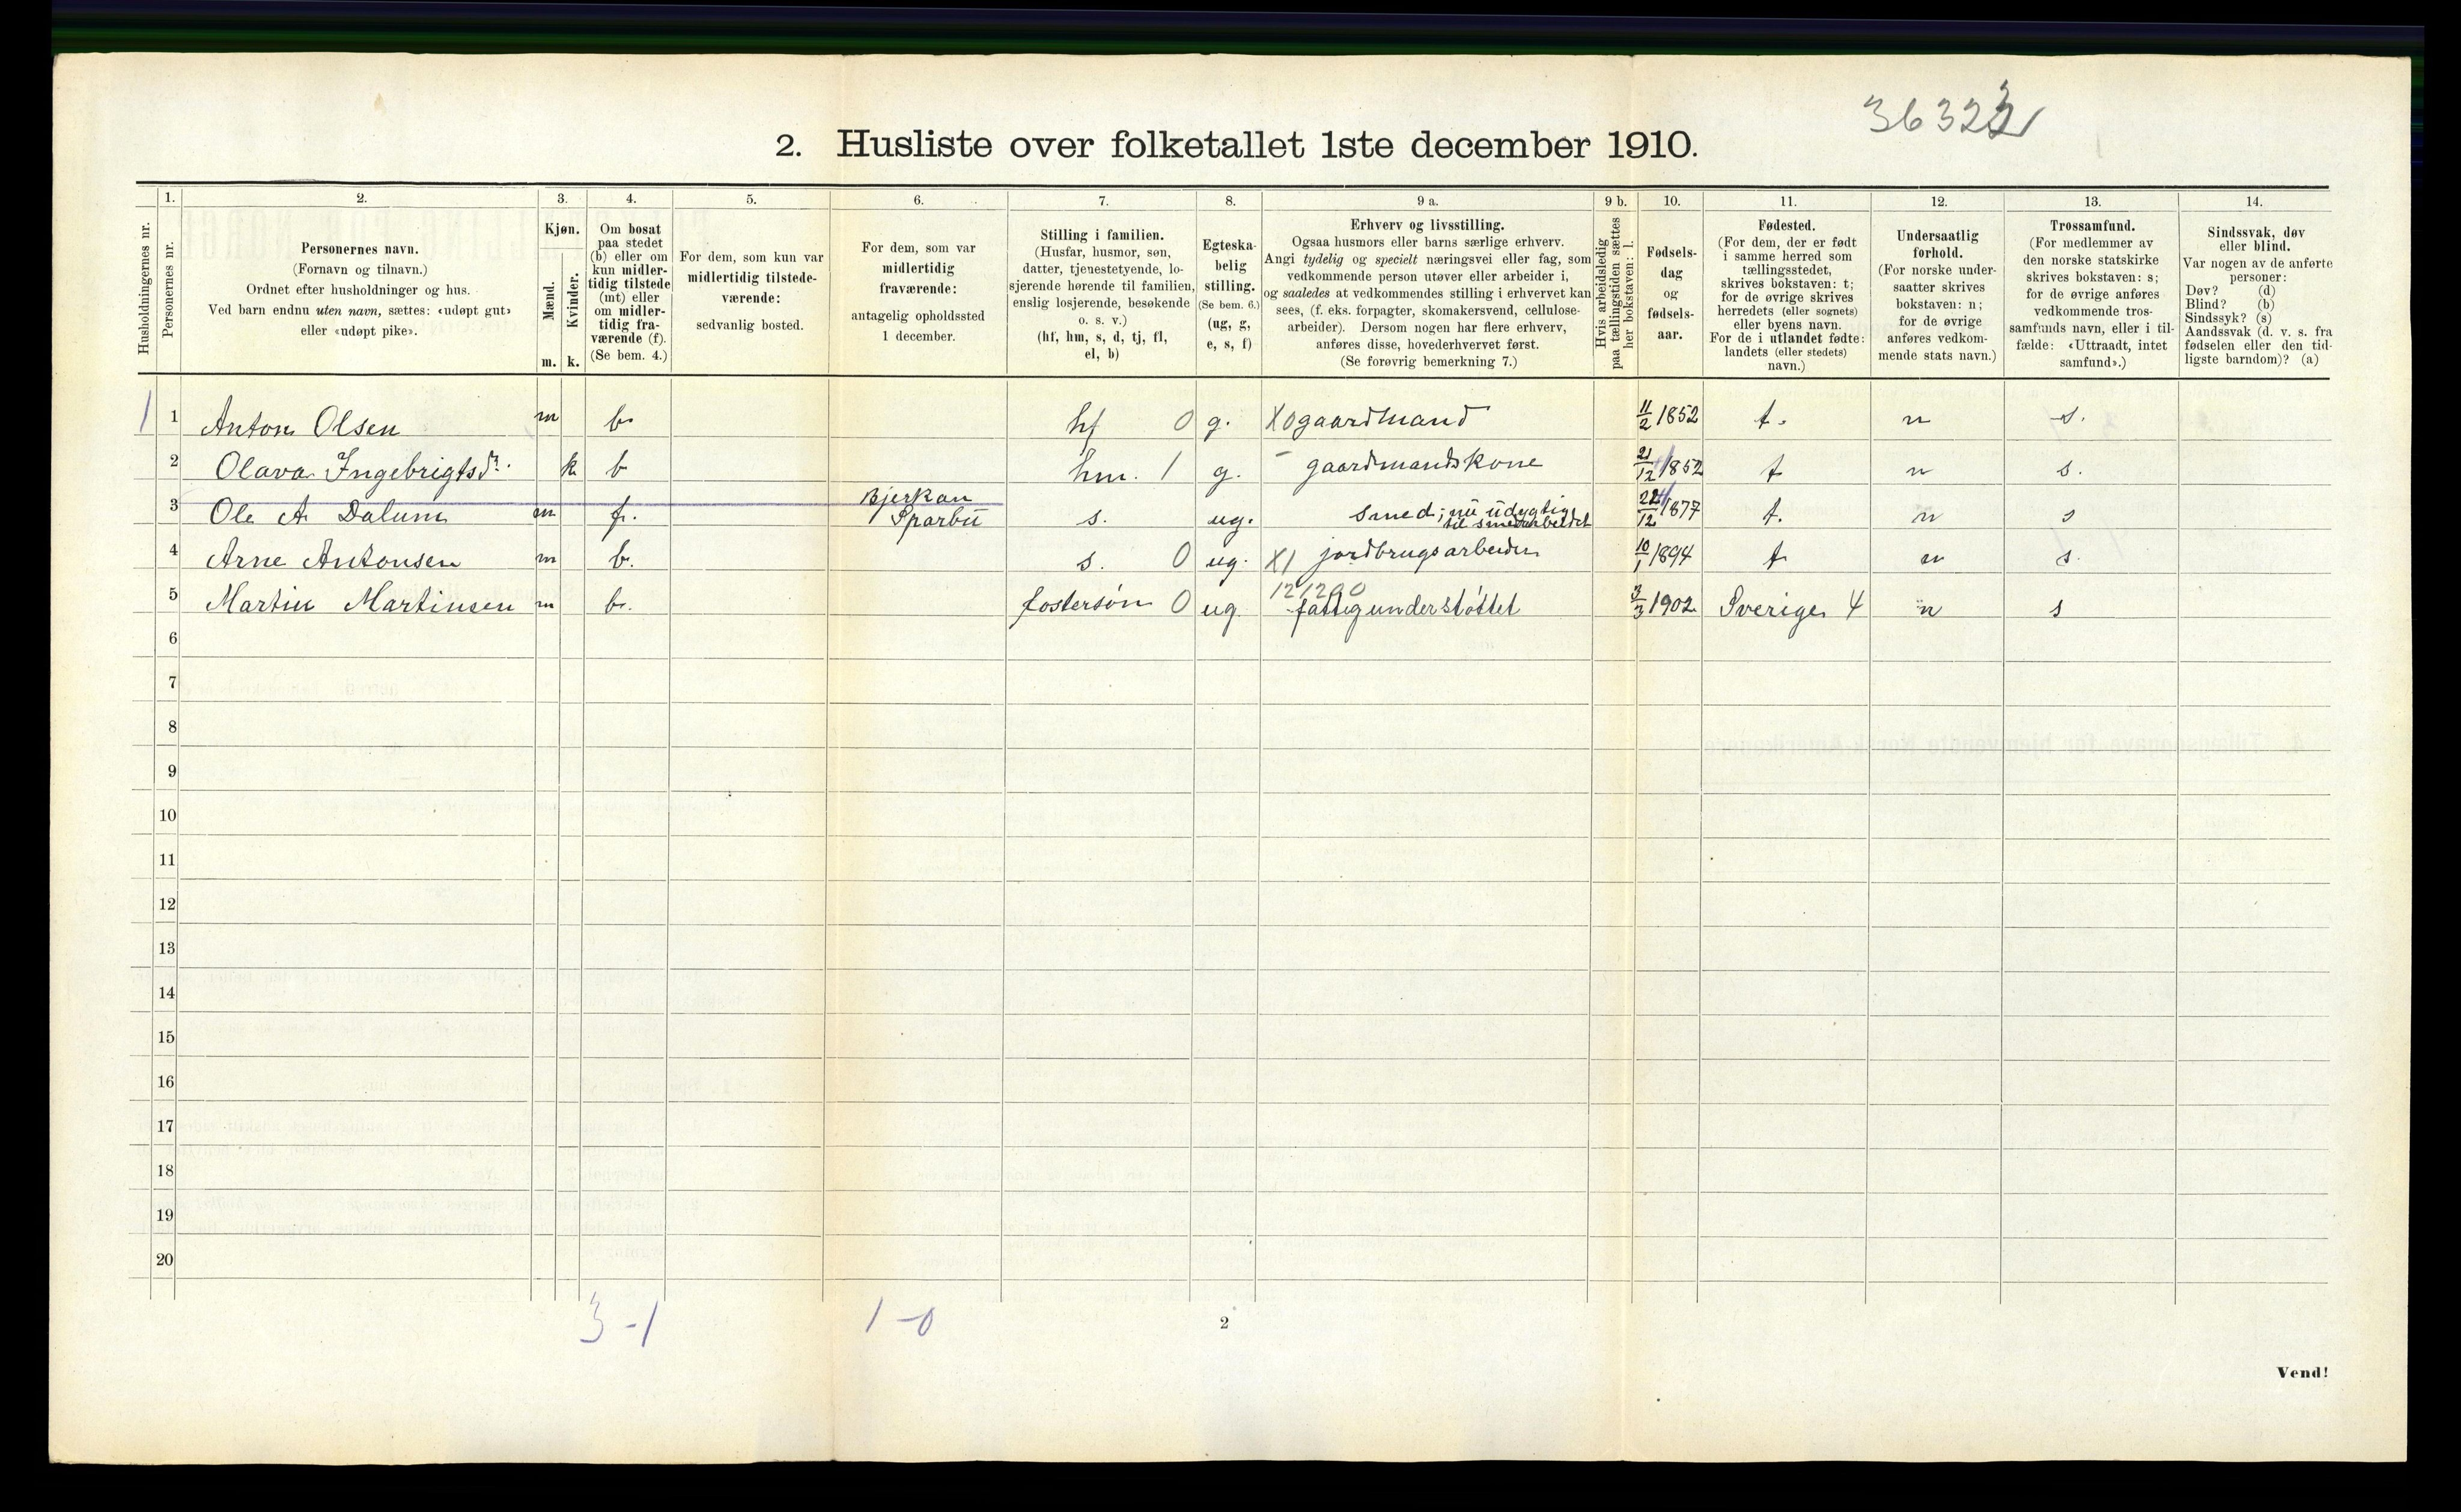 3632
2. Husliste over folketallet 1ste december 1910.
Husholdningernes nr.
1.
Personernes nr.
2.
Personernes navn.
(Fornavn og tilnavn.)
Ordnet efter husholdninger og hus.
Ved barn endnu uten navn, sættes: «udøpt gut»
eller «udøpt pike».
3.
Kjøn.
Mænd.
Kvinder.
m. k.
4.
Om bosat
paa stedet
(b) eller om
kun midler-
tidig tilstede
(mt) eller
om midler-
tidig fra-
værende (f).
(Se bem. 4.)
5.
For dem, som kun var
midlertidig tilstede-
værende:
sedvanlig bosted.
6.
For dem, som var
midlertidig
fraværende:
antagelig opholdssted
1 december.
7.
Stilling i familien.
(Husfar, husmor, søn,
datter, tjenestetyende, lo-
sjerende hørende til familien,
enslig losjerende, besøkende
o. s. v.)
(hf, hm, s, d, tj, fl,
el, b)
8.
Egteska-
belig
stilling.
(Se bem. 6.)
(ug, g,
e, s, f)
9 a.
Erhverv og livsstilling.
Ogsaa husmors eller barns særlige erhverv.
Angi tydelig og specielt næringsvei eller fag, som
vedkommende person utøver eller arbeider i,
og saaledes at vedkommendes stilling i erhvervet kan
sees, (f. eks. forpagter, skomakersvend, cellulose-
arbeider). Dersom nogen har flere erhverv,
anføres disse, hovederhvervet først.
(Se forøvrig bemerkning 7.)
9 b.
Hvis arbeidsledig
paa tællingstiden sættes
her bokstaven: l.
10.
Fødsels-
dag
og
fødsels-
aar.
11.
Fødested.
(For dem, der er født
i samme herred som
tællingsstedet,
skrives bokstaven: t;
for de øvrige skrives
herredets (eller sognets)
eller byens navn.
For de i utlandet fødte:
landets (eller stedets)
navn.)
12.
Undersaatlig
forhold.
(For norske under-
saatter skrives
bokstaven: n;
for de øvrige
anføres vedkom-
mende stats navn.)
13.
Trossamfund.
(For medlemmer av
den norske statskirke
skrives bokstaven: s;
for de øvrige anføres
vedkommende tros-
samfunds navn, eller i til-
fælde: «Uttraadt, intet
samfund».)
14.
Sindssvak, døv
eller blind.
Var nogen av de anførte
personer:
Døv? (d)
Blind? (b)
Sindssyk? (s)
Aandssvak (d. v. s. fra
fødselen eller den tid-
ligste barndom)? (a)
1 1 Anton Olsen m b. hf 0 g. X0 gaardmand 11/2 1852 t. n s.
2 Olava Ingebrigtsdr. k b hm. 1 g. - gaardmandskone 21/12 1852 t n s.
3 Ole A Dalum m f. Bjerkan Sparbu s. ug. smed; nu udygtig til smedarbeidet 22/12 1877 t. n s
4 Arne Antonsen m b. s. 0 ug. X1 jordbrugsarbeider 10/1 1894 t n s.
5 Martin Martinsen m b. fostersøn 0 ug. 121200 fattigunderstøttet 3/3 1902 Sverige 4 n s
6
7
8
9
10
11
12
13
14
15
16
17
18
19
20
3-1 1-0
2
Vend!